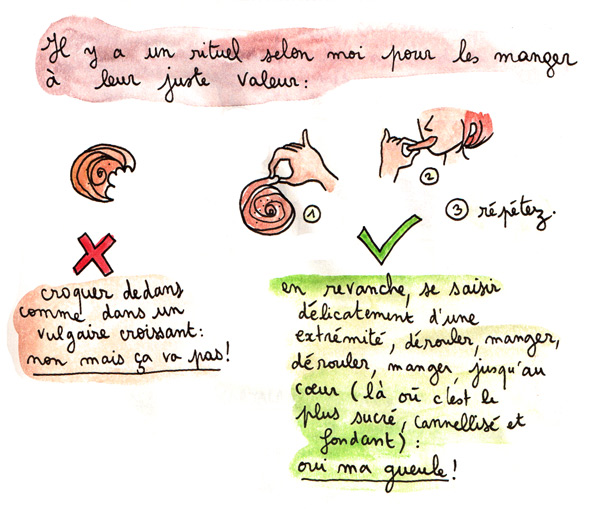 Il y a un rituel selon moi pour les manger
à leur juste valeur:
1
2
3 répétez.
croquer dedans
comme dans un
vulgaire croissant:
non mais ça va pas!
en revanche, se saisir
délicatement d'une
extrémité, dérouler, manger,
dérouler, manger, jusqu'au
cœur (là où c'est le
plus sucré, cannellisé et
fondant):
oui ma gueule!